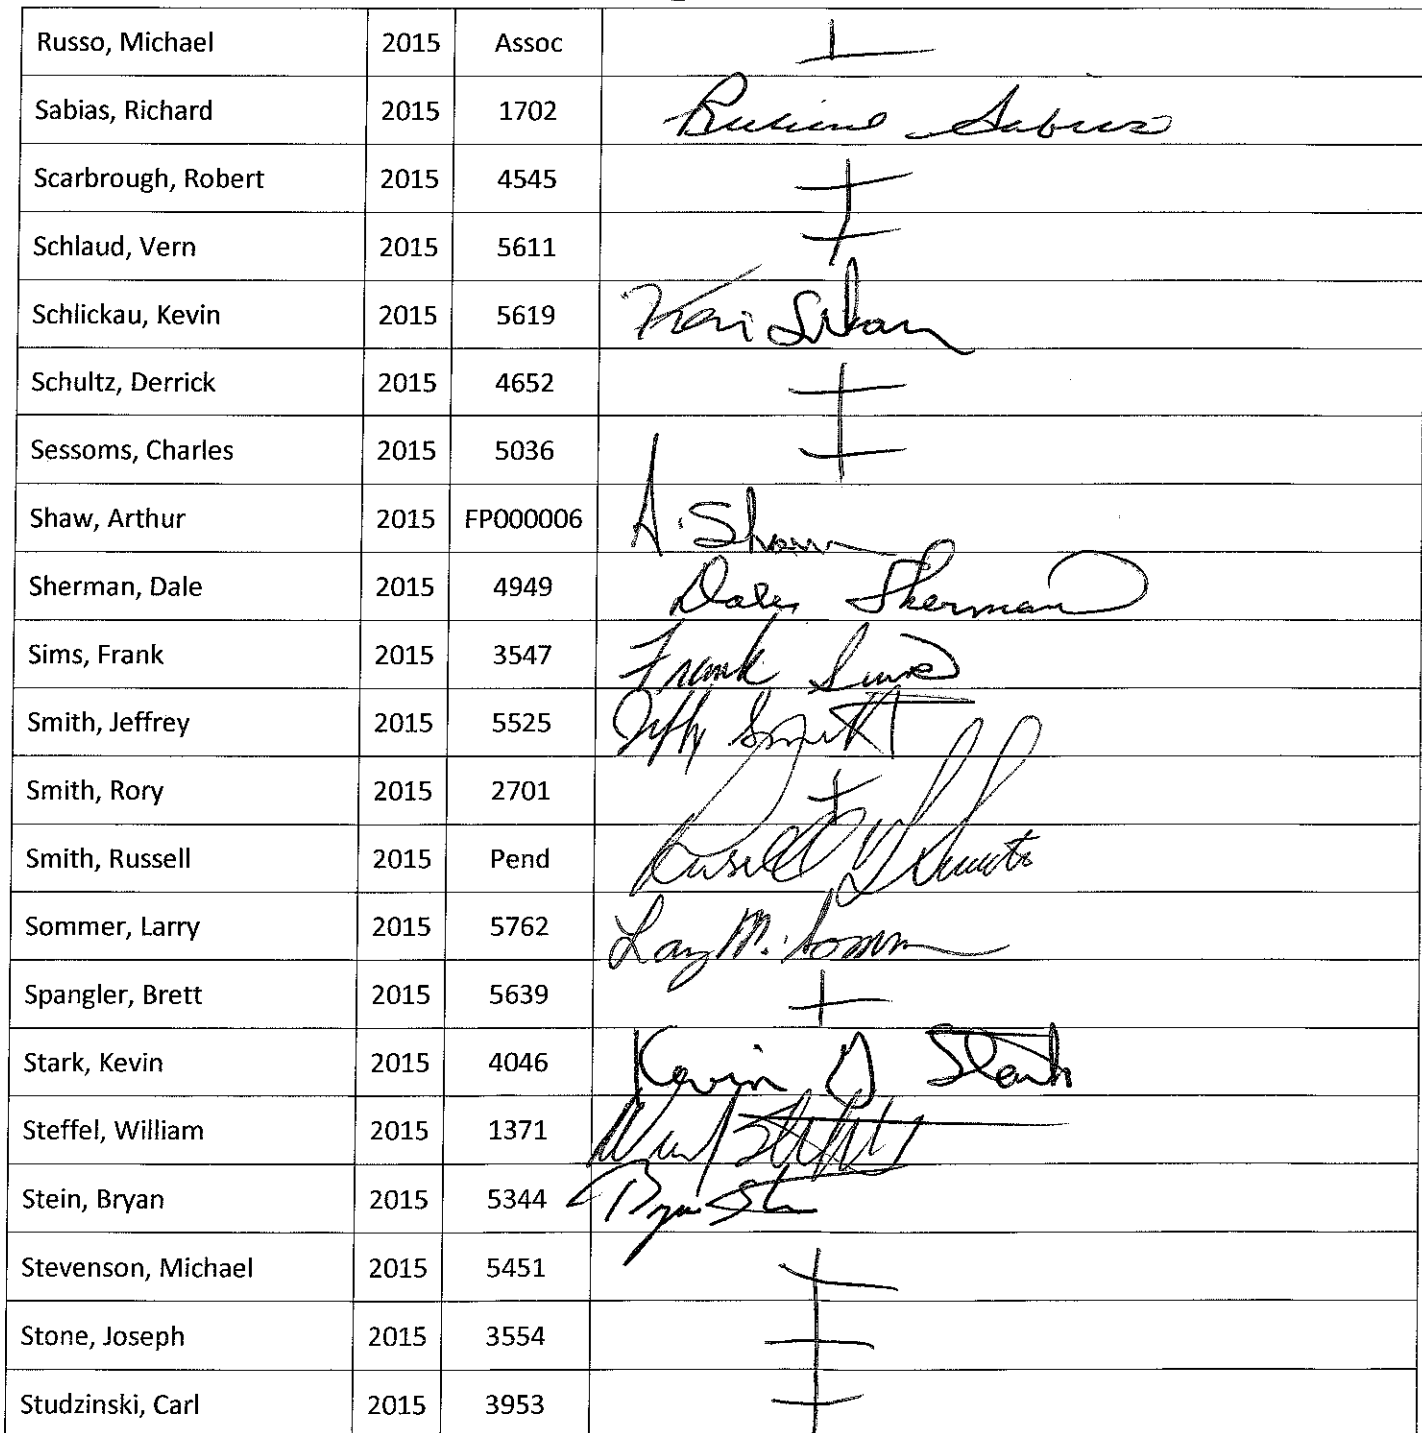 Russo, Michael 2015 Assoc
Sabias, Richard 2015 1702 Sabias
Scarbrough, Robert 2015 4545
Schlaud, Vern 2015 5611
Schlickau, Kevin 2015 5619
Schultz, Derrick 2015 4652
Sessoms, Charles 2015 5036
Shaw, Arthur 2015 FP000006 A. Shaw
Sherman, Dale 2015 4949 Dale Sherman
Sims, Frank 2015 3547 Frank Sims
Smith, Jeffrey 2015 5525 Smith
Smith, Rory 2015 2701
Smith, Russell 2015 Pend Russell
Sommer, Larry 2015 5762 Larry M. Sommer
Spangler, Brett 2015 5639
Stark, Kevin 2015 4046 Kevin D Stark
Steffel, William 2015 1371
Stein, Bryan 2015 5344
Stevenson, Michael 2015 5451
Stone, Joseph 2015 3554
Studzinski, Carl 2015 3953